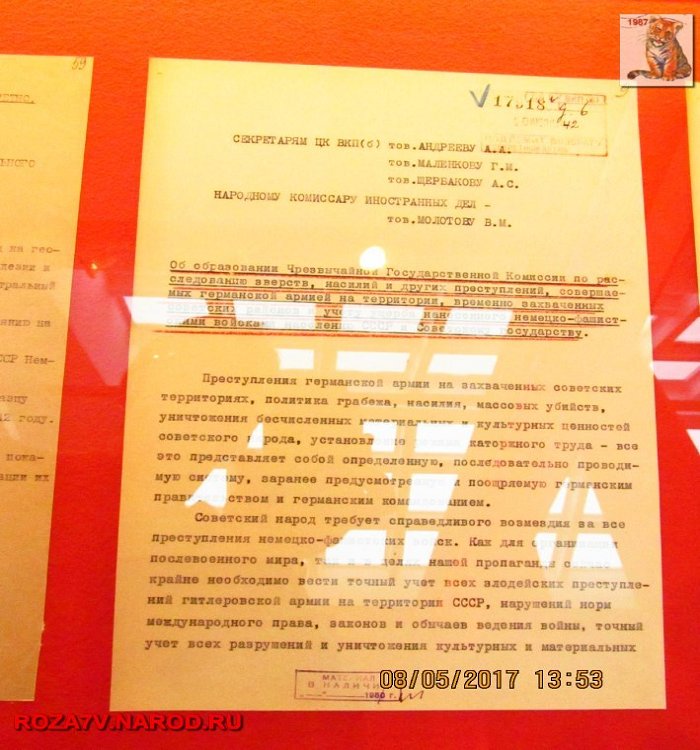 59
ельного
на гео-
дезии и
тральный
янию на
ССР Нем-
42 году.
пока-
ации их
1987
17 18
42
СЕКРЕТАРЯМ ЦК ВКП(б) тов.АНДРЕЕВУ А.А.
тов.МАЛЕНКОВУ Г.М.
тов.ЩЕРБАКОВУ А.С.
НАРОДНОМУ КОМИССАРУ ИНОСТРАННЫХ ДЕЛ -
тов.МОЛОТОВУ В.М.
Об образовании Чрезвычайной Государственной Комиссии по рас-
следованию зверств, насилий и других преступлений, совершае-
мых германской армией на территории, временно захваченных
районов и учету ущерба нанесенного немецко-фашист-
скими войсками населению СССР и Советскому государству.
Преступления германской армии на захваченных советских
территориях, политика грабежа, насилия, массовых убийств,
уничтожения бесчисленных материальных и культурных ценностей
советского народа, установление режима каторжного труда - все
это представляет собой определенную, последовательно проводи-
мую систему, заранее предусмотренную и поощряемую германским
правительством и германским командованием.
Советский народ требует справедливого возмездия за все
преступления немецко-фашистских войск. Как для организации
послевоенного мира, так и в целях нашей пропаганды сейчас
крайне необходимо вести точный учет всех злодейских преступле-
ний гитлеровской армии на территории СССР, нарушений норм
международного права, законов и обычаев ведения войны, точный
учет всех разрушений и уничтожения культурных и материальных
МАТЕРИАЛ
В НАЛИЧИИ
1980 г.
08/05/2017 13:53
ROZAYV.NAROD.RU